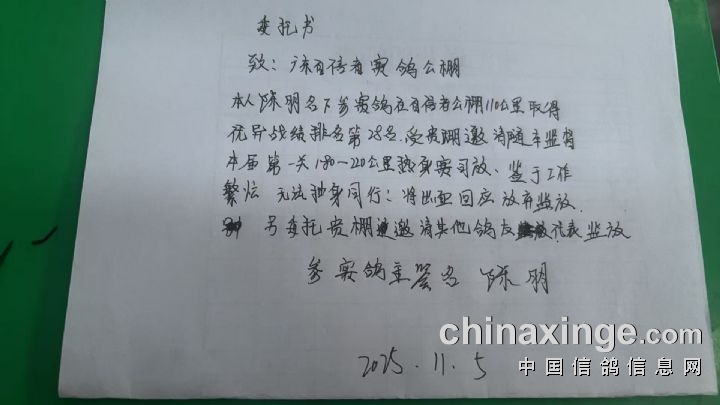 委托书
致：广东自信者赛鸽公棚
本人陈明名下参赛鸽在自信者公棚110公里取得
优异战绩排名第28名.受贵棚邀请随车监督
本届第一关180-220公里热身赛司放、鉴于工作
繁忙 无法抽身同行：将出面回应放弃监放.
另委托贵棚邀请其他鸽友代表监放
参赛鸽主签名 陈明
2025.11.5
chinaxinge.com
中国信鸽信息网